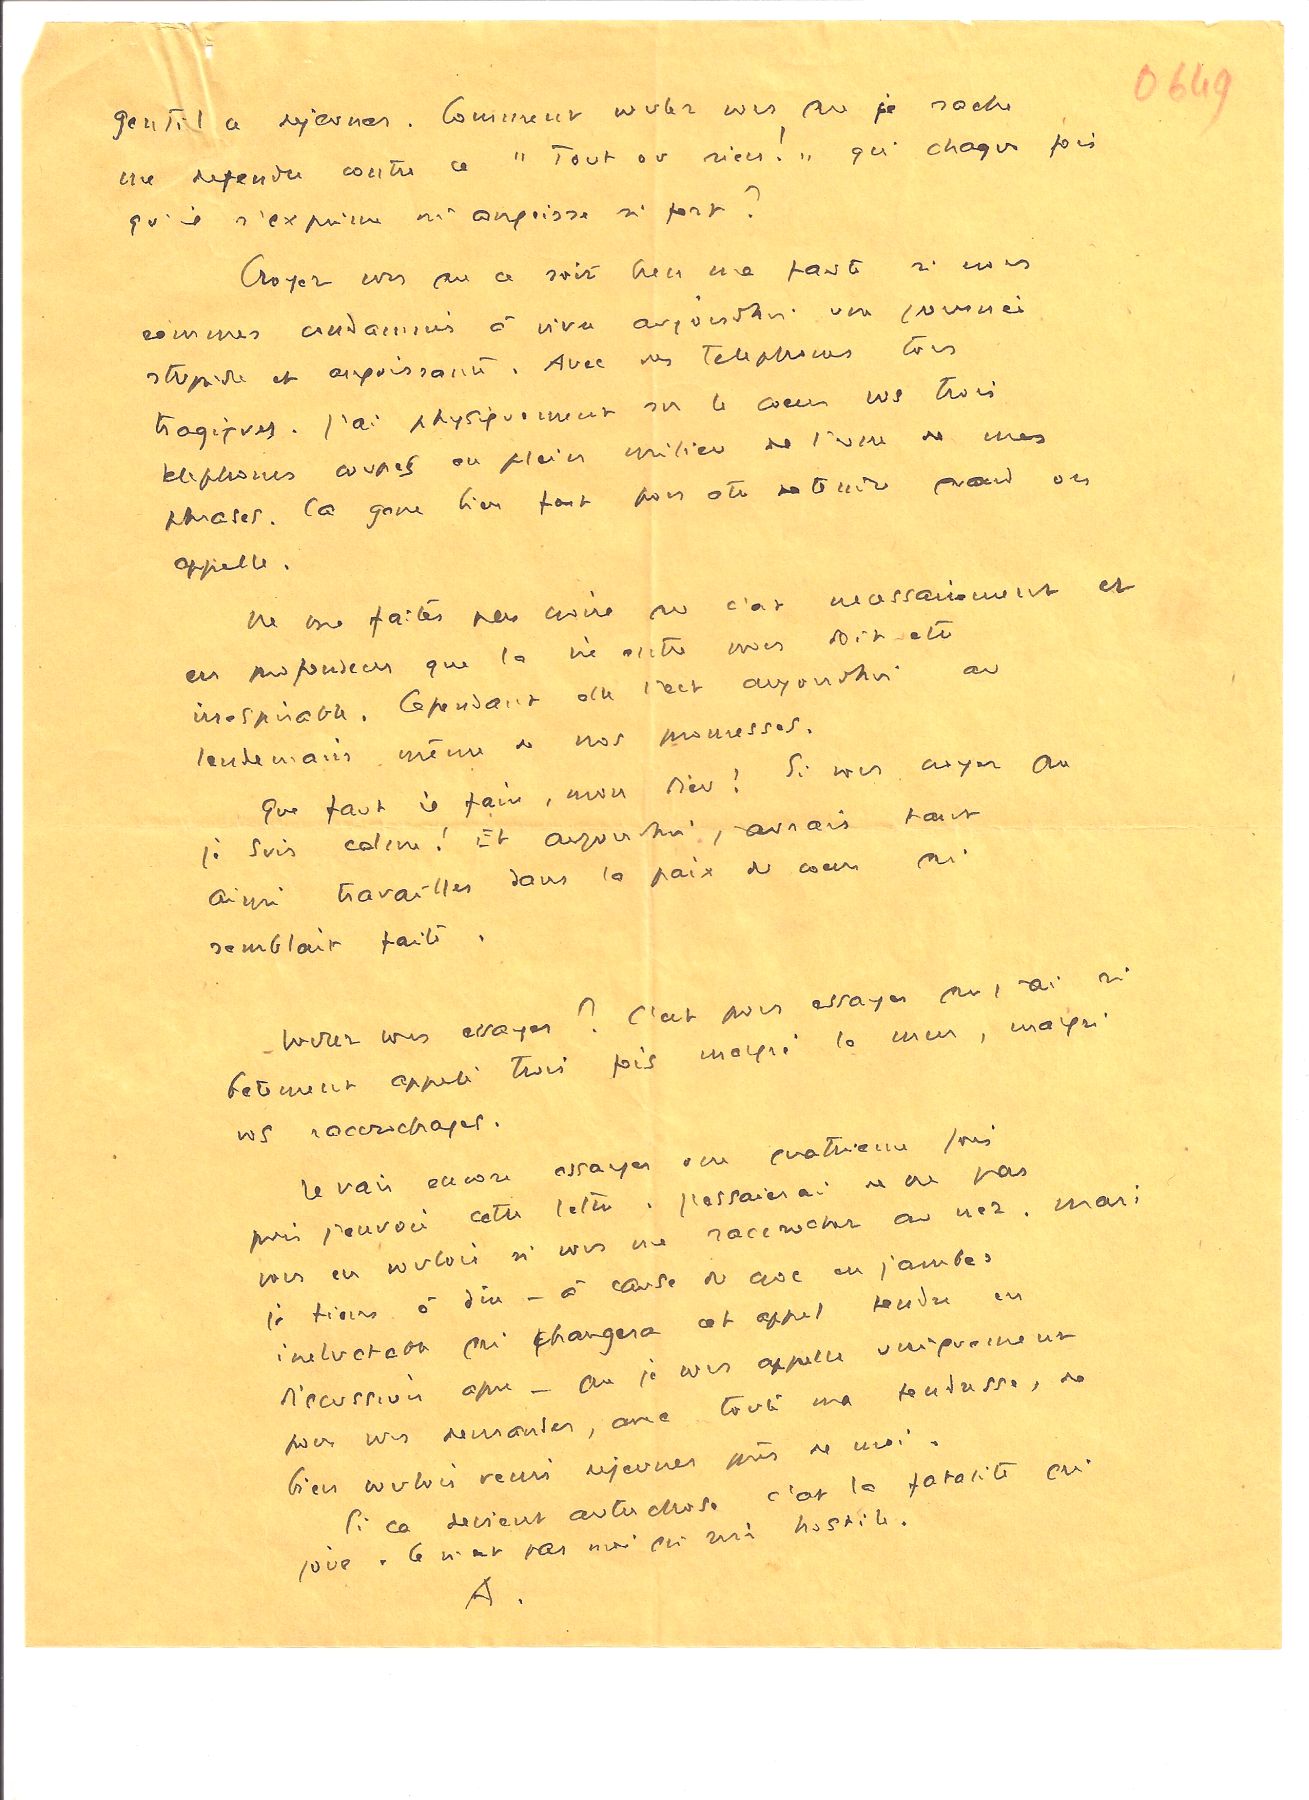 0649
gentil a dejeuner. Comment voulez vous que je sache
me defendre contre ce "Tout ou rien!" qui chaque fois
qu'il s'exprime m'angoisse si fort ?
Croyez vous que ce soit bien ma faute si nous
sommes condamnés à vivre aujourdhui une journée
stupide et angoissante. Avec des telephones tous
tragiques. J'ai physiquement sur le coeur vos trois
telephones coupés au plein milieu de l'une de mes
phrases. Ca gene bien fort pour etre detendu quand on
appelle.
Ne me faites pas croire que c'est necessairement et
en profondeur que la vie entre nous doit etre
irrespirable. Cependant elle l'est aujourdhui au
lendemain même de nos promesses.
Que faut il faire, mon Dieu ! Si vous croyez que
je suis calme ! Et aujourdhui, j'aurais tant
aimé travailler dans la paix du coeur qui
semblait faite.
Voulez vous essayer ? C'est pour essayer que j'ai si
betement appelé trois fois malgré le mur, malgré
vos raccrochages.
Je vais encore essayer une quatrieme fois
puis j'envoie cette lettre. J'essaierai de ne pas
vous en vouloir si vous me raccrochez au nez. Mais
je tiens à dire — à cause du croc en jambes
ineluctable qui changera cet appel tendre en
discussion apre — que je vous appelle uniquement
pour vous demander, avec toute ma tendresse, de
bien vouloir venir dejeuner près de moi.
Si ca devient autre chose c'est la fatalité qui
joue. Ce n'est pas moi qui suis hostile.
A.